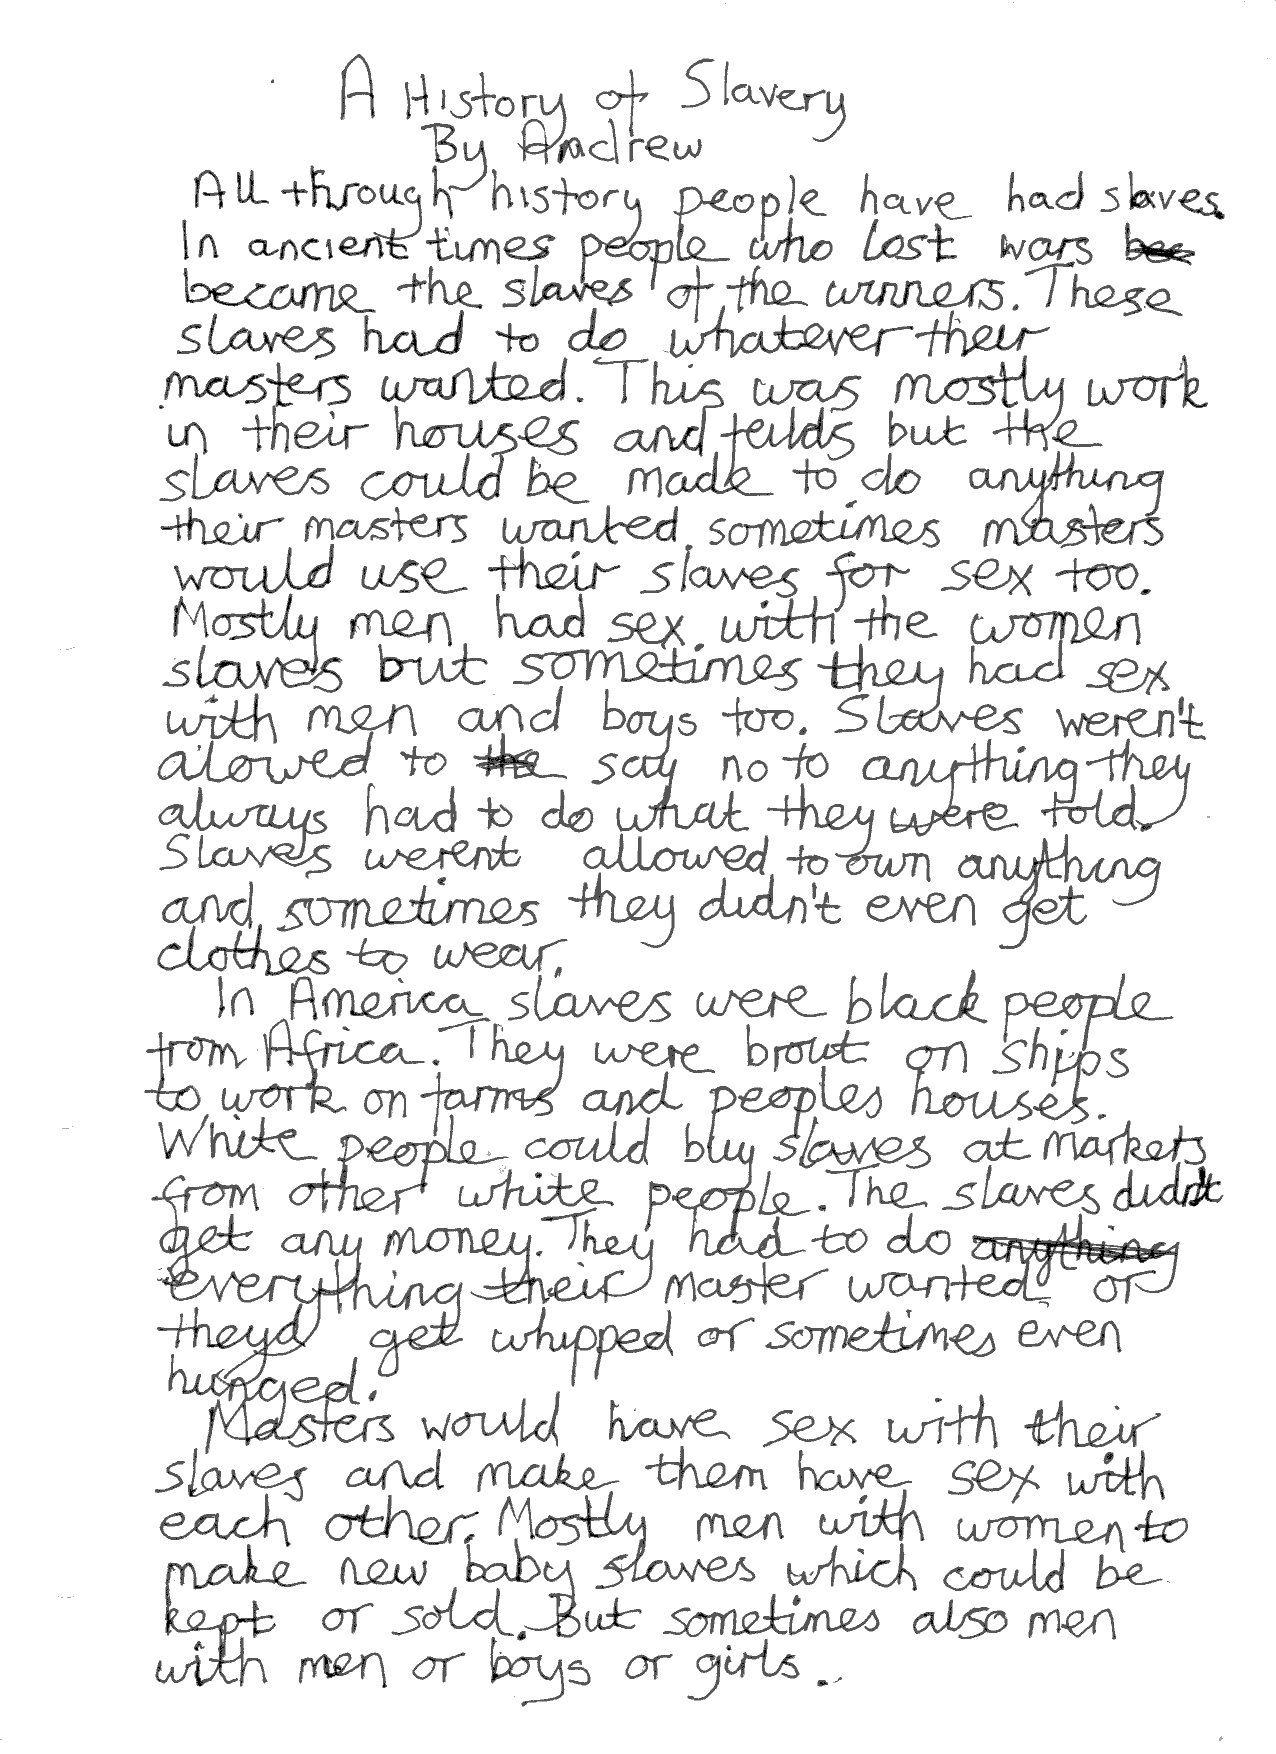 A History of Slavery
By Andrew
All through history people have had slaves.
In ancient times people who lost wars bec
became the slaves of the winners. These
slaves had to do whatever their
masters wanted. This was mostly work
in their houses and feilds but the
slaves could be made to do anything
their masters wanted. sometimes masters
would use their slaves for sex too.
Mostly men had sex with the women
slaves but sometimes they had sex
with men and boys too. Slaves weren't
alowed to the say no to anything they
always had to do what they were told.
Slaves werent allowed to own anything
and sometimes they didn't even get
clothes to wear.
In America slaves were black people
from Africa. They were brout on ships
to work on farms and peoples houses.
White people could buy slaves at markets
from other white people. The slaves didn't
get any money. They had to do anything
everything their master wanted or
theyd get whipped or sometimes even
hunged.
Masters would have sex with their
slaves and make them have sex with
each other. Mostly men with women to
make new baby slaves which could be
kept or sold. But sometimes also men
with men or boys or girls.